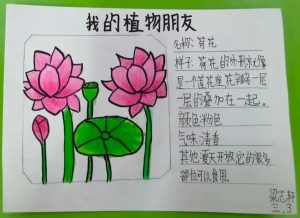 我的植物朋友
名称:荷花
样子:荷花的外形就像
是一个莲花座,花瓣一层
一层的叠加在一起。
颜色:粉色
气味:清香
其他:夏天开放,它的很多
部位可以食用。
梁志轩
三、3